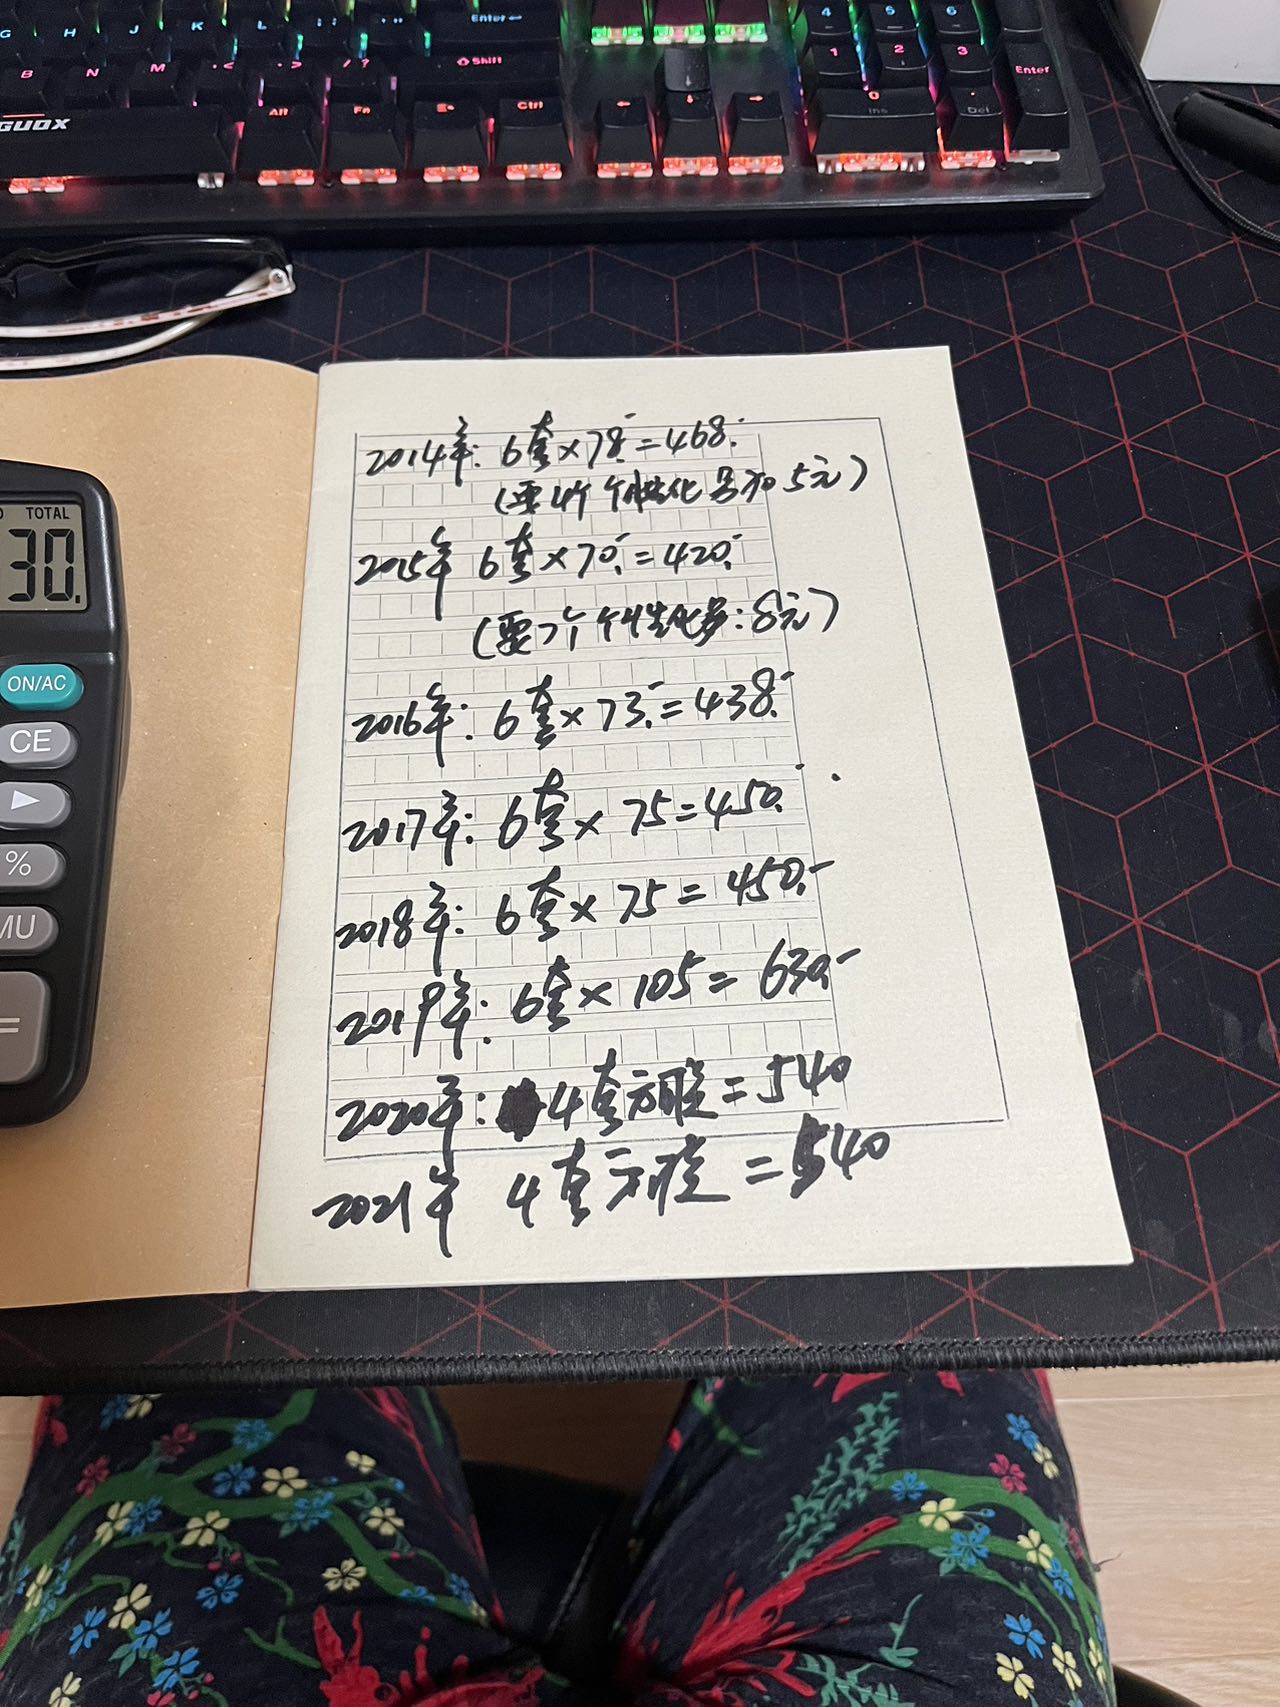 G H J K L Enter
B N M < > / ? Shift
Alt Fn Ctrl
4 5 6
1 2 3 Enter
0 Ins Del
TOTAL
30.
ON/AC
CE
▶
%
MU
=
2014年: 6套×78.-=468.-
(要4个个性化号加5元)
2015年 6套×70.-=420.-
(要7个个性化号:8元)
2016年: 6套×73.-=438.-
2017年: 6套×75=450.-
2018年: 6套×75=450.-
2019年: 6套×105=630.-
2020年: 4套方胶=540
2021年 4套方胶=540